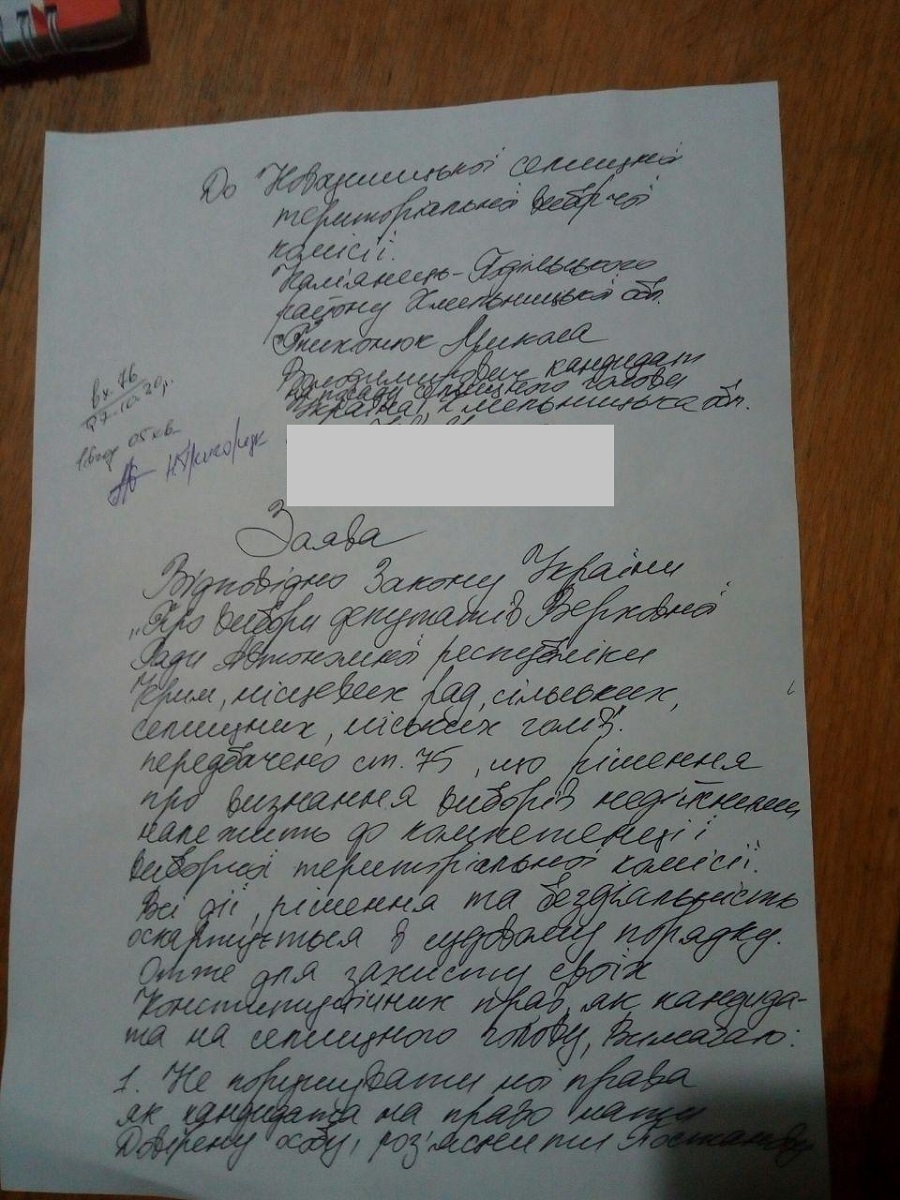 До Новаушицької селищної
територіальної виборчої
комісії.
Кам'янець-Подільського
району Хмельницької обл.
Тихонюк Микола
Володимирович кандидат
на посаду селищного голови
Україна, Хмельницька обл.
вх. 76
27.10.20р.
16 год 05 хв.
Заява
Відповідно Закону України
„Про вибори депутатів Верховної
Ради Автономної республіки
Крим, місцевих рад, сільських,
селищних, міських голів".
передбачено ст. 75, що рішення
про визнання виборів недійсними
належить до компетенції
виборчої територіальної комісії.
Всі дії, рішення та бездіяльність
оскаржується в судовому порядку.
Отже для захисту своїх
Конституційних прав, як кандида-
та на селищного голову, Вимагаю:
1. Не порушувати мої права
як кандидата на право мати
Довірену особу, роз'яснити Постанову